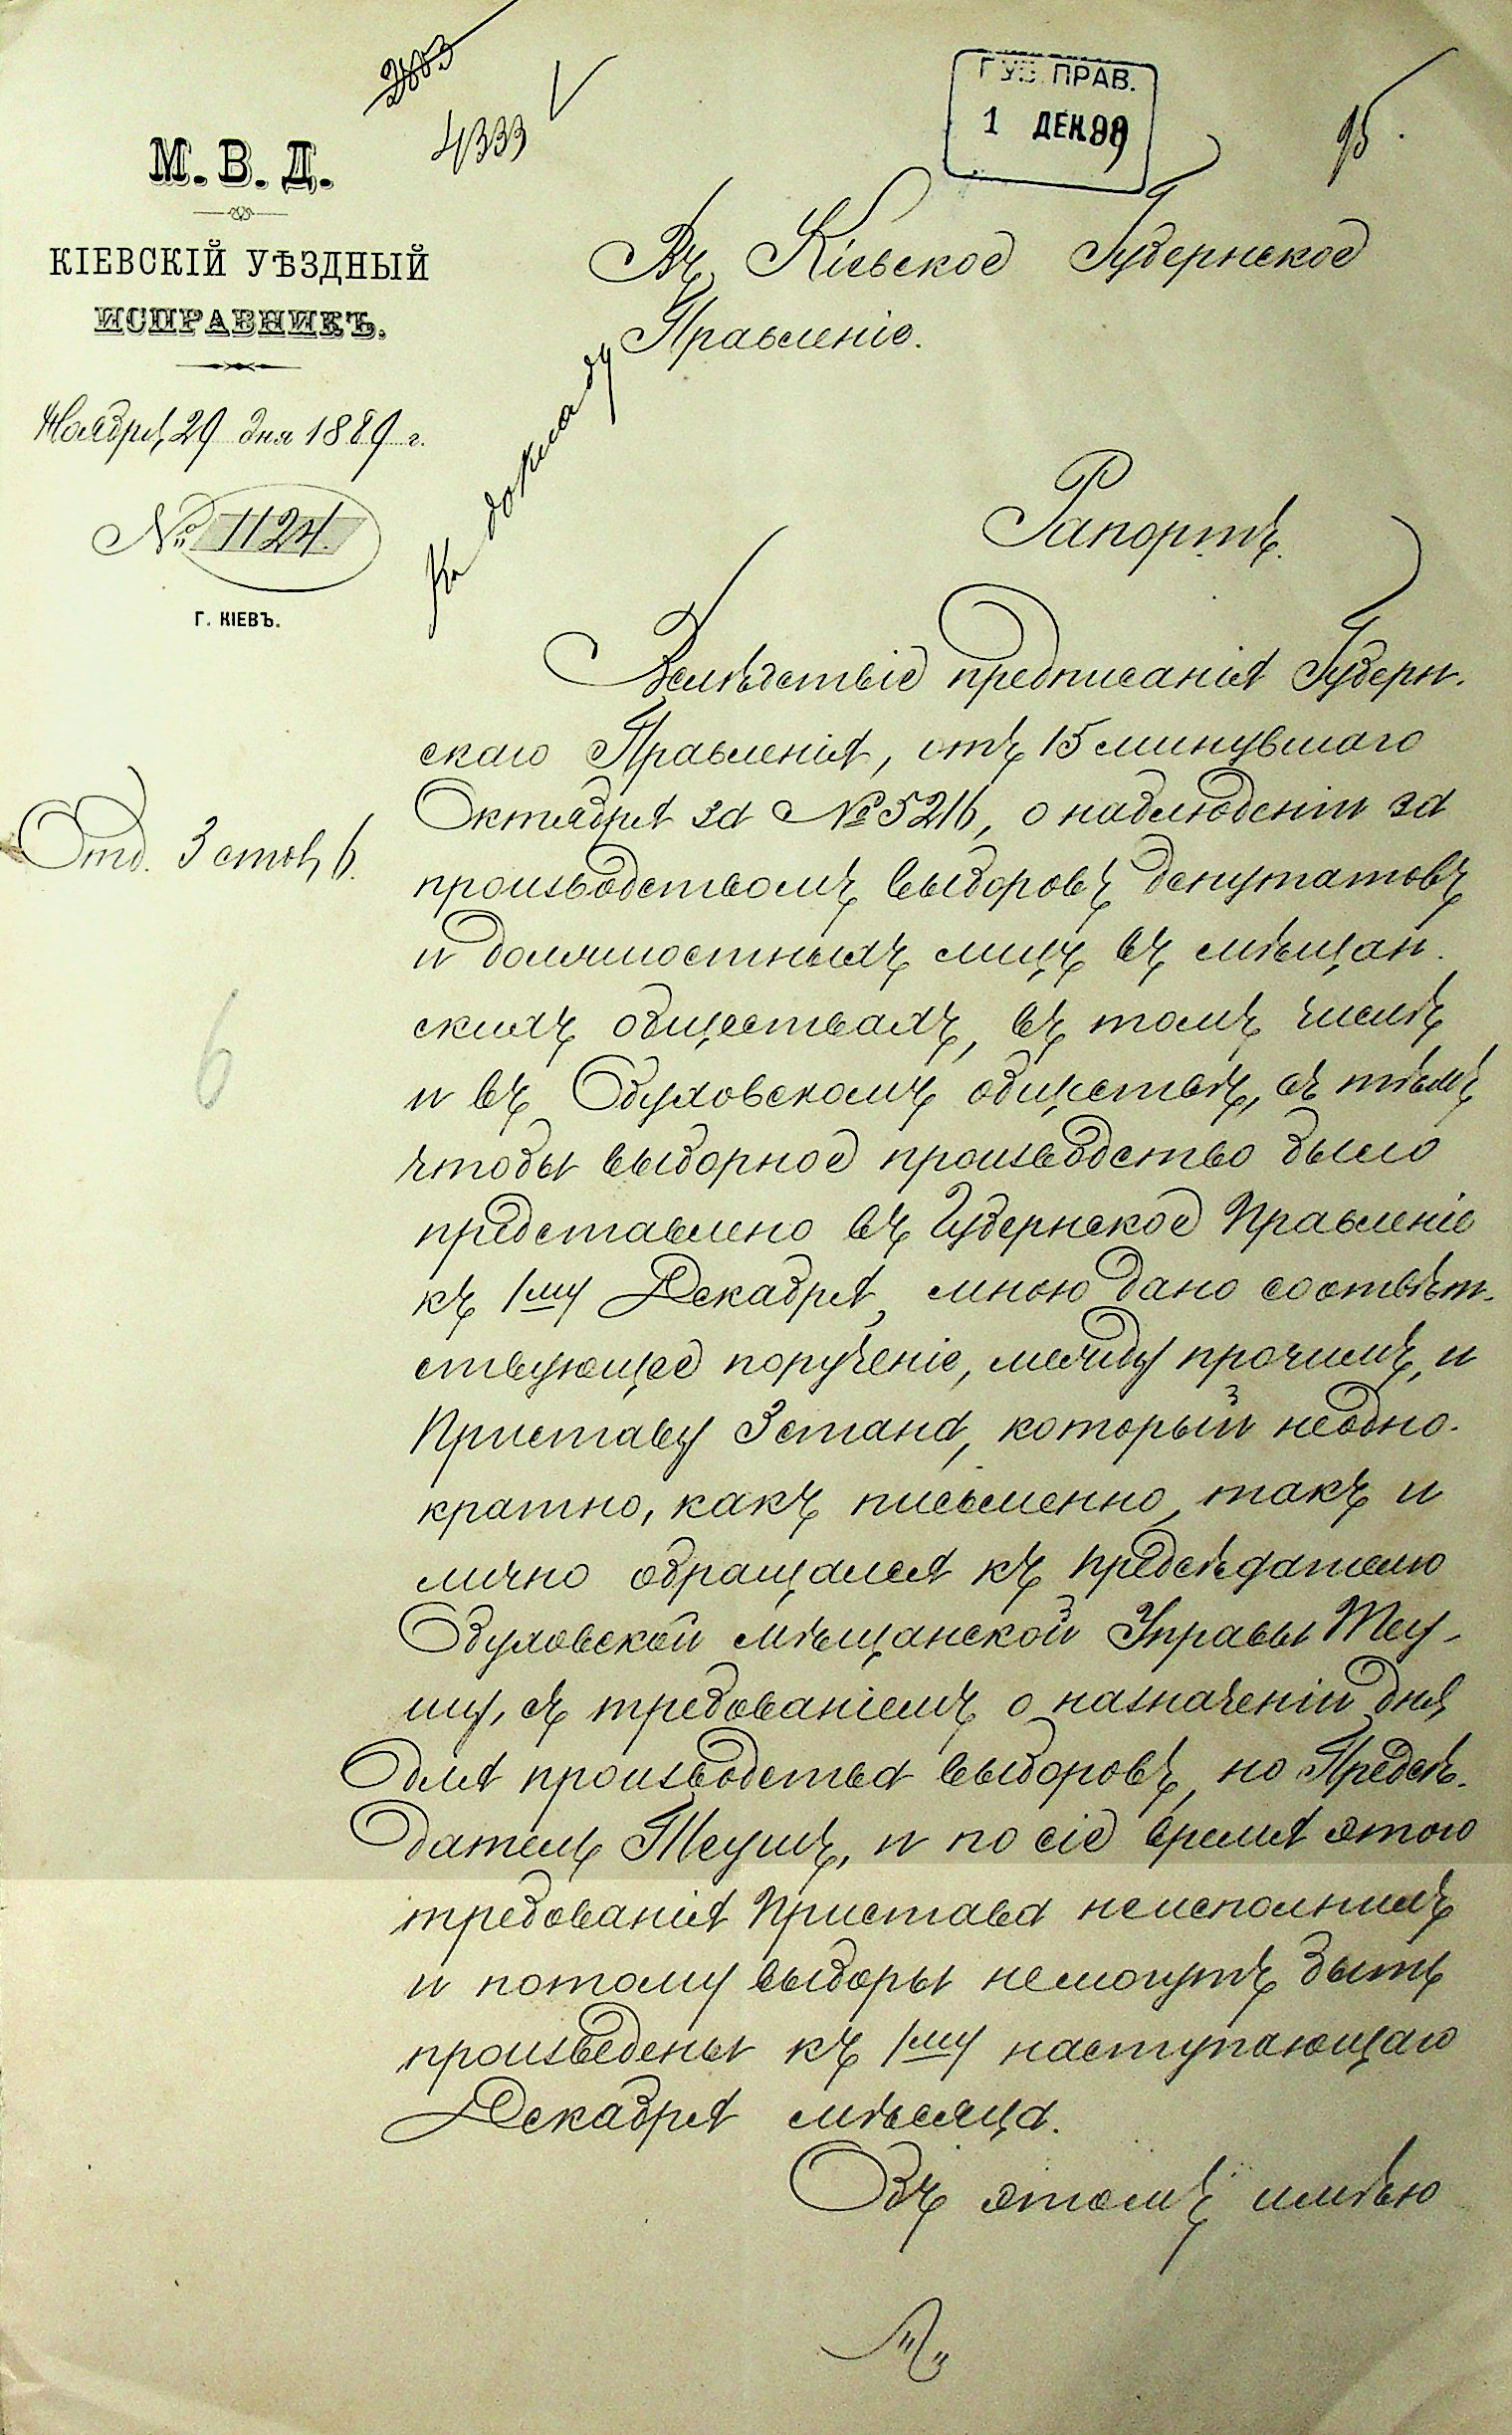 2883
4333
ГУБ. ПРАВ.
1 ДЕК.89
95.
М. В. Д.
КІЕВСКІЙ УѢЗДНЫЙ
ИСПРАВНИКЪ.
Ноября 29 дня 1889 г.
№ 1124.
Г. КІЕВЪ.
Отд. 3 столъ 6.
6
Къ докладу
Въ Кіевское Губернское
Правленіе.
Рапортъ.
Вслѣдствіе предписанія Губерн-
скаго Правленія, отъ 15 минувшаго
Октября за № 5216, о наблюденіи за
производствомъ выборовъ депутатовъ
и должностныхъ лицъ въ мѣщан-
скихъ обществахъ, въ томъ числѣ
и въ Обуховскомъ обществѣ, съ тѣмъ
чтобы выборное производство было
представлено въ Губернское Правленіе
къ 1му Декабря, мною дано соотвѣт-
ствующее порученіе, между прочимъ, и
Приставу 3 стана, который неодно-
кратно, какъ письменно, такъ и
лично обращался къ предсѣдателю
Обуховской мѣщанской Управы Теу-
шу, съ требованіемъ о назначеніи дня
для производства выборовъ, но Предсѣ-
датель Теушъ, и по сіе время этого
требованія Пристава неисполнилъ
и потому выборы немогутъ быть
произведены къ 1му наступающаго
Декабря мѣсяца.
Объ этомъ имѣю